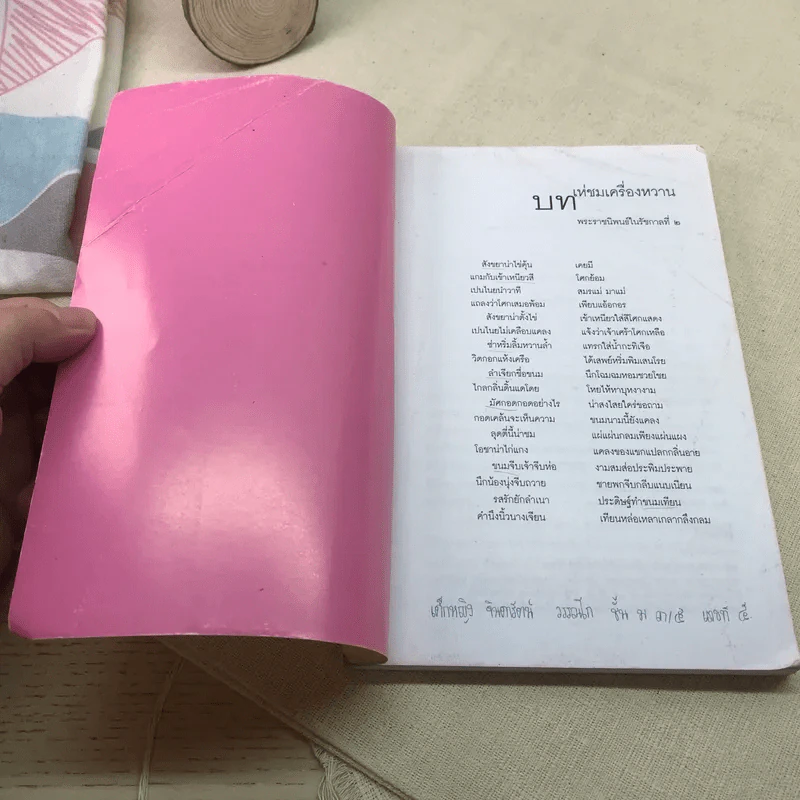 บทเห่ชมเครื่องหวาน
พระราชนิพนธ์ในรัชกาลที่ ๒
สังขยาน่าไข่คุ้น เคยมี
แกมกับเข้าเหนียวสี โศกย้อม
เปนในยนำวาที สมรแม่ มาแม่
แถลงว่าโศกเสมอพ้อม เพียบแอ้อกอร
สังขยาน่าตั้งไข่ เข้าเหนียวใส่สีโศกแสดง
เปนในยไม่เคลือบแคลง แจ้งว่าเจ้าเศร้าโศกเหลือ
ซ่าหริ่มลิ้มหวานล้ำ แทรกใส่น้ำกะทิเจือ
วิตกอกแห้งเครือ ได้เสพย์หริ่มพิมเสนโรย
ลำเจียกชื่อขนม นึกโฉมฉมหอมชวยโชย
ไกลกลิ่นดิ้นแดโดย โหยไห้หาบุหงางาม
มัศกอดกอดอย่างไร น่าสงไสยใคร่ขอถาม
กอดเคล้นจะเห็นความ ขนมนามนี้ยังแคลง
ลุดตี่นี้น่าชม แผ่แผ่นกลมเพียงแผ่นแผง
โอชาน่าไก่แกง แคลงของแขกแปลกกลิ่นอาย
ขนมจีบเจ้าจีบห่อ งามสมส่อประพิมประพาย
นึกน้องนุ่งจีบถวาย ชายพกจีบกลีบแนบเนียน
รสรักยักลำเนา ประดิษฐ์ทำขนมเทียน
คำนึงนิ้วนางเจียน เทียนหล่อเหลาเกลากลึงกลม
เด็กหญิง จินตารัตน์ ชั้น ม ๓/๕ เลขที่ ๕